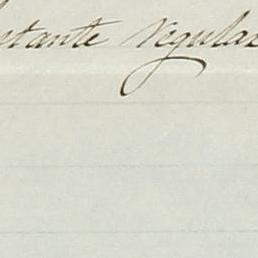 bstante regular